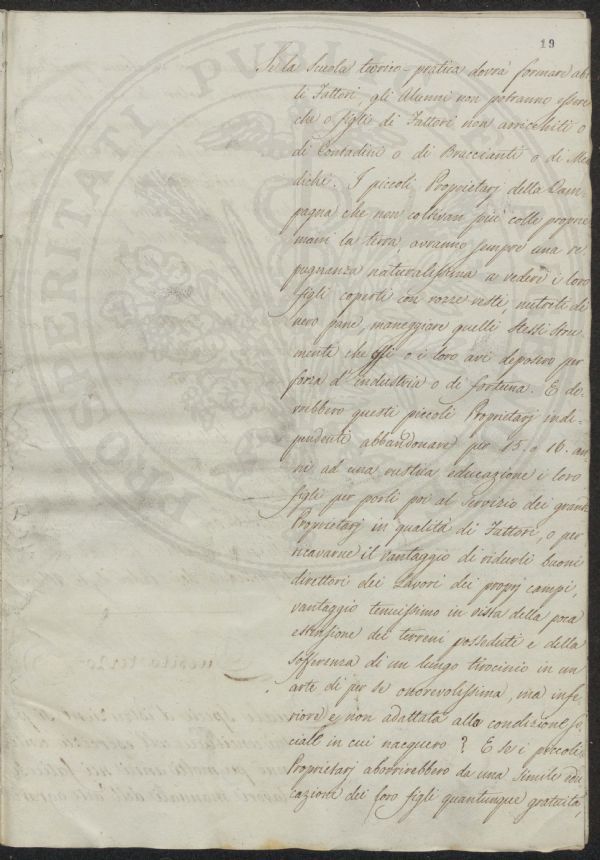 19
Se la Scuola teorico-pratica dovrà formare abi
li Fattori, gli Alunni non potranno essere
che o figli di Fattori non arricchiti o
di Contadini o di Braccianti o di Me
dichi. I piccoli Proprietarj della Cam-
pagna che non coltivan più colle proprie
mani la terra, avranno sempre una re
pugnanza naturalissima a vedere i loro
figli coperti con rozze vesti, nutriti di
nero pane, maneggiare quelli stessi stru-
menti che essi o i loro avi deposero per
forza d'industria o di fortuna. E do-
vrebbero questi piccoli Proprietarj indi-
pendenti abbandonare per 15. o 16. an-
ni ad una rustica educazione i loro
figli per porli poi al servizio dei grandi
Proprietarj in qualità di Fattori, o per
ricavarne il vantaggio di vederli buoni
direttori dei Lavori dei proprj campi,
vantaggio tenuissimo in vista della poca
estensione dei terreni posseduti e della
sofferenza di un lungo tirocinio in un
arte di per se onorevolissima, ma infe
riore e non adattata alla condizione so
ciale in cui nacquero? E se i piccoli
Proprietarj aborrirebbero da una simile edu
cazione dei loro figli quantunque gratuita,
PROSPERITATI PUBLICAE